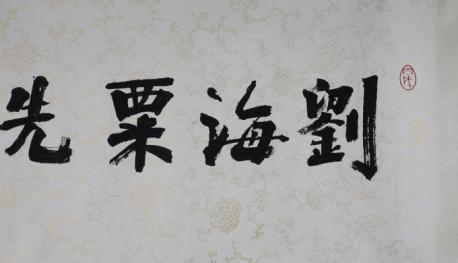 劉海粟先